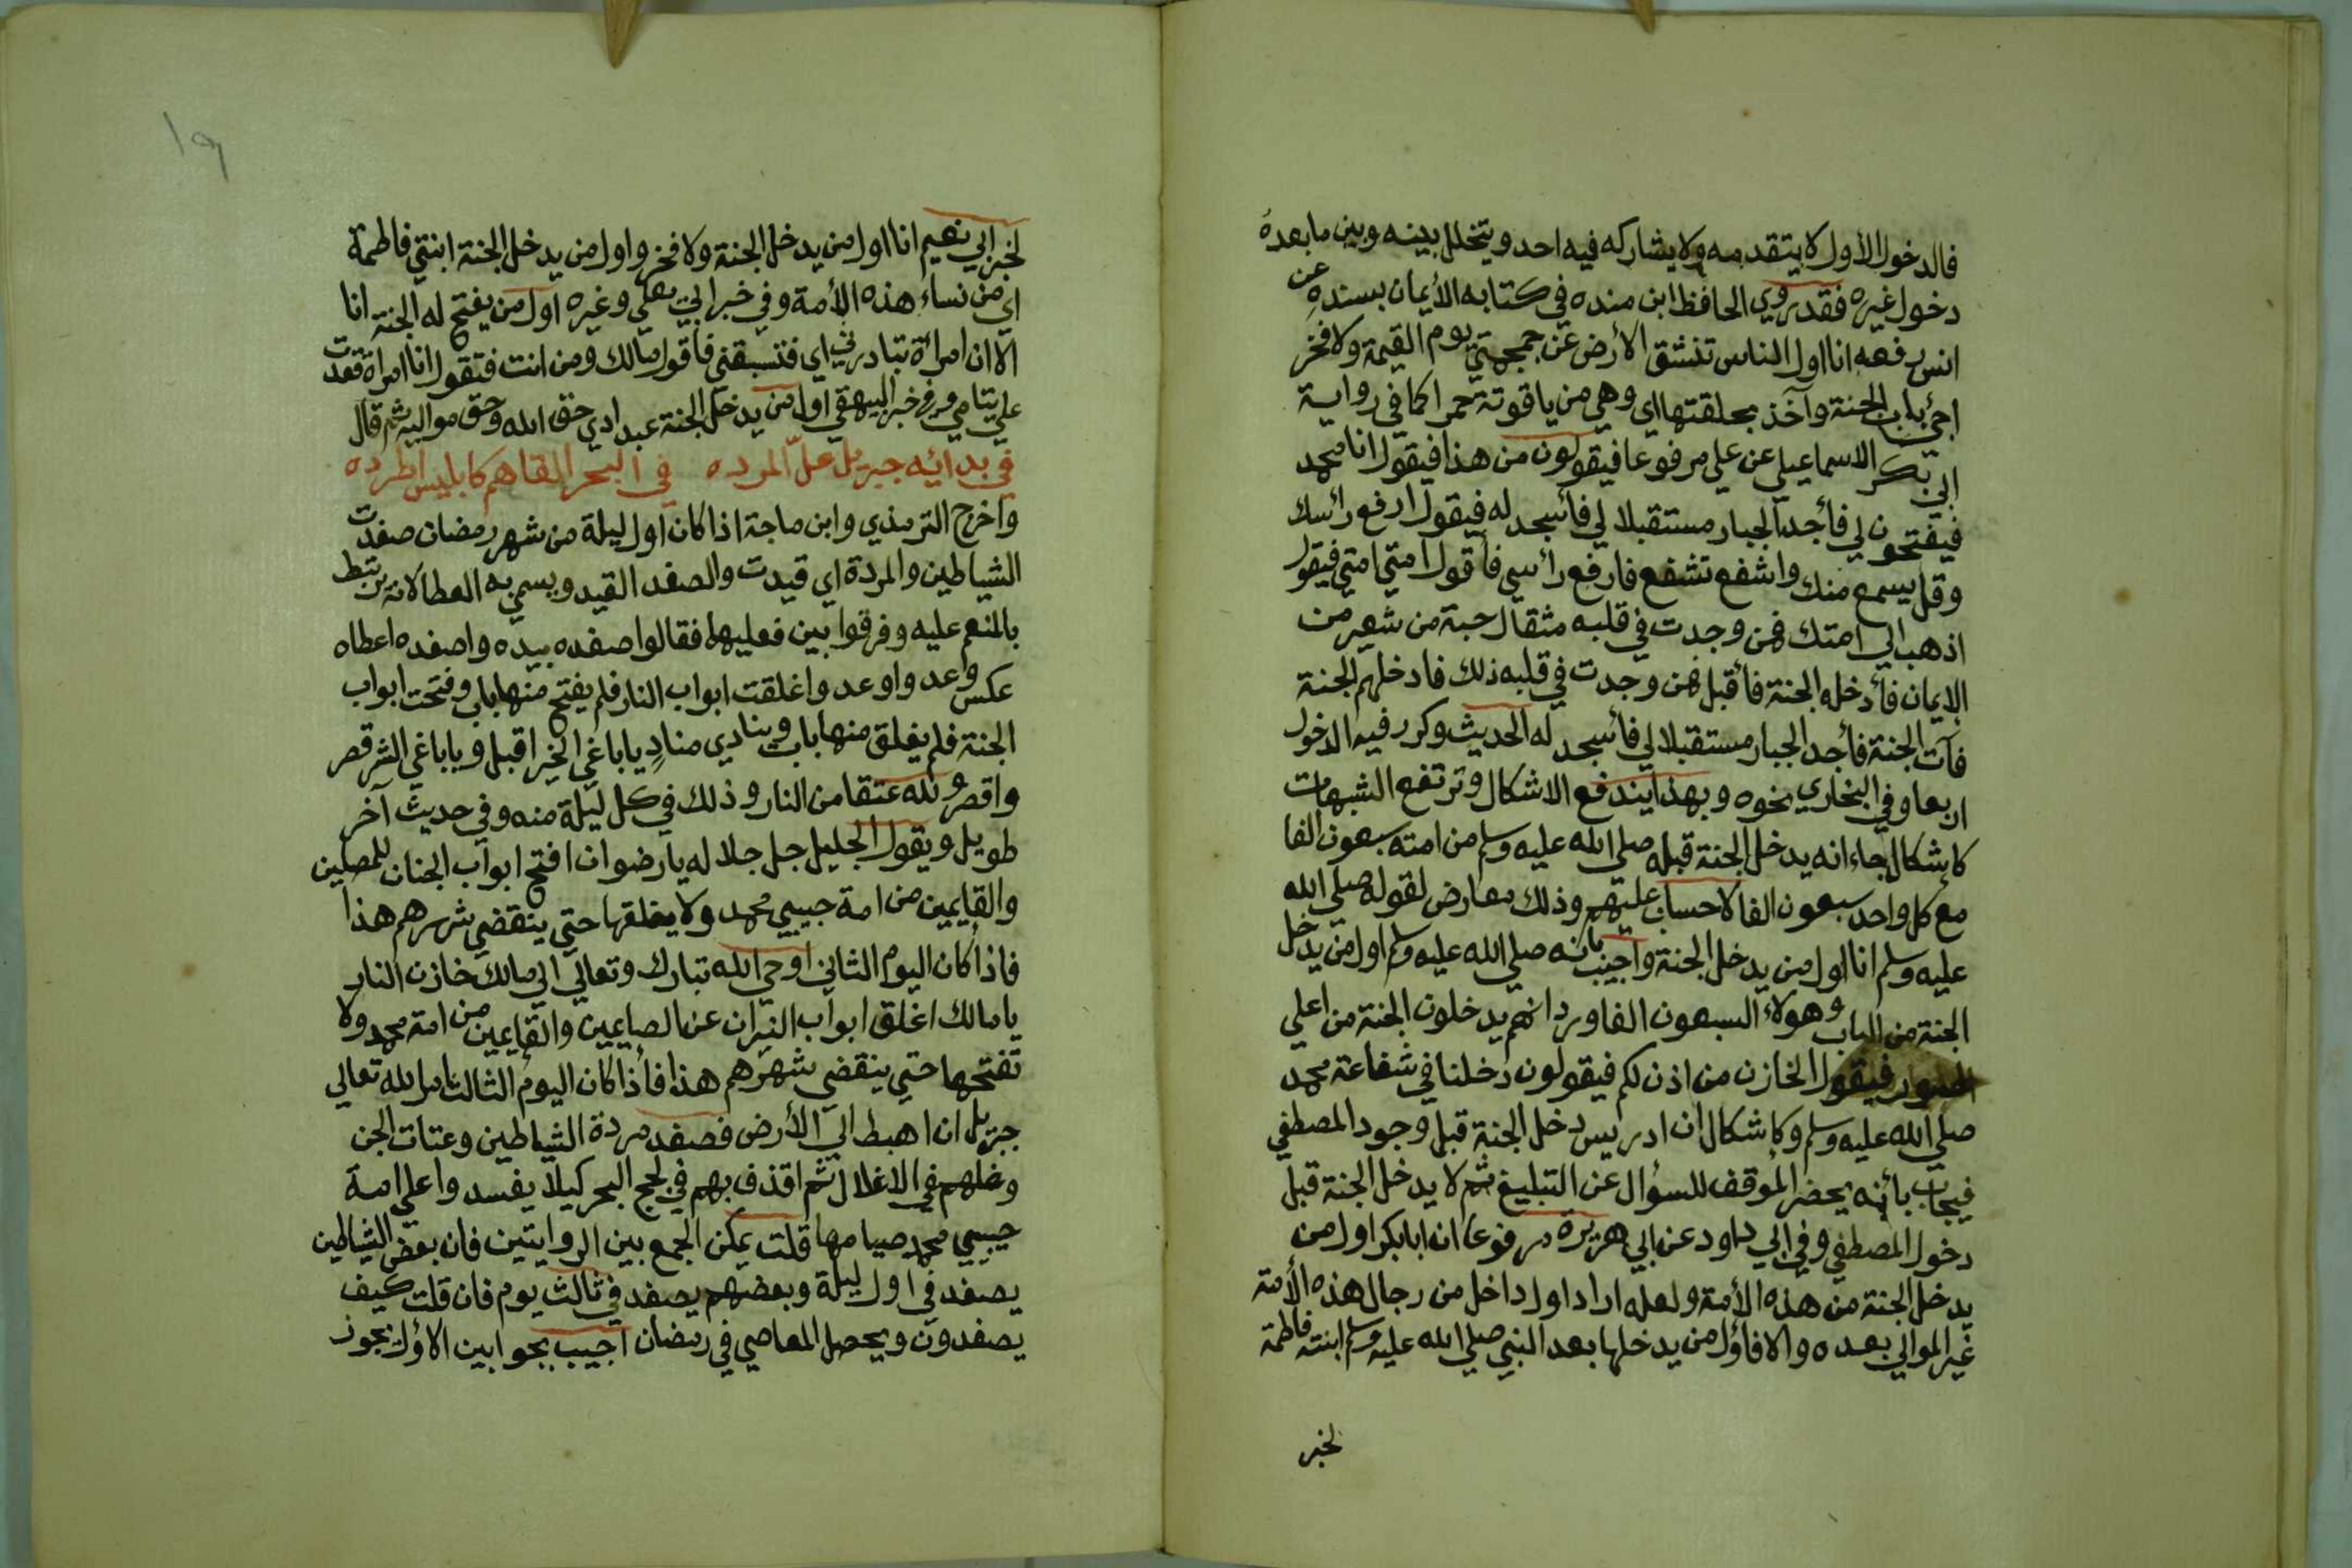 فالدخول الأول لا يتقدمه ولا يشاركه فيه احد ويتخلل بينه وبين ما بعده
دخول غيره فقد روي الحافظ ابن منده في كتابه الأيمان بسنده عن
انس رفعه انا اول الناس تنشق الأرض عن جمجمتي يوم القيمة ولا فخر
اجئ باب الجنة وآخذ بحلقتها اي وهي من ياقوتة حمرا كما في رواية
ابي بكر الاسماعيلي عن علي مرفوعا فيقولون من هذا فيقول انا محمد
فيفتحون لي فأجد الجبار مستقبلا لي فأسجد له فيقول ارفع رأسك
وقل يسمع منك واشفع تشفع فارفع رأسي فأقول امتي امتي فيقول
اذهب الي امتك فمن وجدت في قلبه مثقال حبة من شعير من
الإيمان فأدخله الجنة فأقبل فمن وجدت في قلبه ذلك فادخلهم الجنة
فآت الجنة فأجد الجبار مستقبلا لي فأسجد له الحديث وكرر فيه الدخول
اربعا وفي البخاري نحوه وبهذا يندفع الاشكال وترتفع الشبهات
كاشكال جاء انه يدخل الجنة قبله صلي الله عليه وسلم من امته سبعون الفا
مع كل واحد سبعون الفا لا حساب عليهم وذلك معارض لقوله صلي الله
عليه وسلم انا اول من يدخل الجنة واجيب بانه صلي الله عليه وسلم اول من يدخل
الجنة من الباب وهولاء السبعون الفا ورد انهم يدخلون الجنة من اعلي
السور فيقول الخازن من اذن لكم فيقولون دخلنا في شفاعة محمد
صلي الله عليه وسلم وكاشكال ان ادريس دخل الجنة قبل وجود المصطفي
فيجاب بأنه يحضر الموقف للسؤال عن التبليغ ثم لا يدخل الجنة قبل
دخول المصطفي وفي ابي داود عن ابي هريرة مرفوعا ان ابابكر اول من
يدخل الجنة من هذه الأمة ولعله اراد اول داخل من رجال هذه الأمة
غير الموالي بعده والا فاؤل من يدخلها بعد النبي صلي الله عليه وسلم ابنته فاطمة
لخبر
١٩
لخبر ابي نعيم انا اول من يدخل الجنة ولا فخر واول من يدخل الجنة ابنتي فاطمة
اي من نساء هذه الأمة وفي خبر ابي يعلي وغيره اول من يفتح له الجنة انا
الا ان امرأة تبادرني اي فتسبقني فأقول مالك ومن انت فتقول انا امرأة قعدت
علي يتامي وفي خبر البيهقي اول من يدخل الجنة عبد ادي حق الله وحق مواليه ثم قال
في بدائه جبريل غل المرده في البحر القاهم كابليس اطرده
واخرج الترمذي وابن ماجة اذا كان اول ليلة من شهر رمضان صفدت
الشياطين والمردة اي قيدت والصفد القيد ويسمي به العطا لانه يرتبط
بالمنعم عليه وفرقوا بين فعليهما فقالوا صفده بيده واصفده اعطاه
عكس وعد واوعد واغلقت ابواب النار فلم يفتح منها باب وفتحت ابواب
الجنة فلم يغلق منها باب وينادي منادٍ ياباغي الخير اقبل وياباغي الشر قصر
واقصر ولله عتقا من النار وذلك في كل ليلة منه وفي حديث آخر
طويل ويقول الجليل جل جلاله يا رضوان افتح ابواب الجنان للمصلين
والقايمين من امة حبيبي محمد ولا يغلقها حتي ينقضي شهرهم هذا
فاذا كان اليوم الثاني اوحي الله تبارك وتعالي الي مالك خازن النار
يا مالك اغلق ابواب النيران عن الصايمين والقايمين من امة محمد ولا
تفتحها حتي ينقضي شهرهم هذا فأذا كان اليوم الثالث امر الله تعالي
جبريل ان اهبط الي الأرض فصفد مردة الشياطين وعتات الجن
وغلهم في الاغلال ثم اقذف بهم في لجج البحر كيلا يفسد واعلي امة
حبيبي محمد صيامها قلت يمكن الجمع بين الروايتين فان بعض الشياطين
يصفد في اول ليلة وبعضهم يصفد في ثالث يوم فان قلت كيف
يصفدون ويحصل المعاصي في رمضان اجيب بجوابين الاؤل يجوز